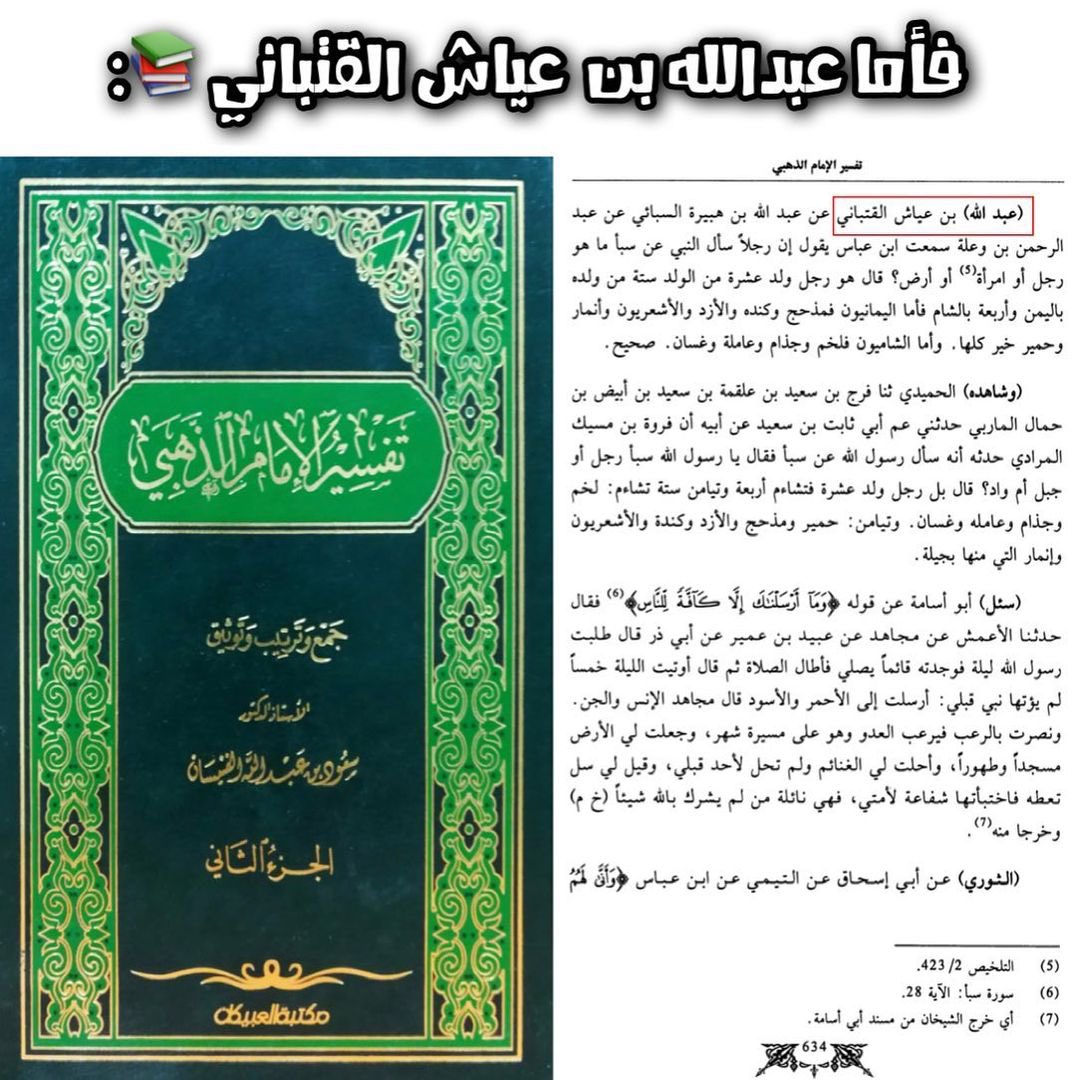 فأما عبدالله بن عياش القتباني 📚:
تفسير الإمام الذهبي
جمع وترتيب وتوثيق
الأستاذ الدكتور
سعود بن عبد الله الفنيسان
الجزء الثاني
مكتبة العبيكان
تفسير الإمام الذهبي
(عبد الله) بن عياش القتباني عن عبد الله بن هبيرة السبائي عن عبد
الرحمن بن وعلة سمعت ابن عباس يقول إن رجلاً سأل النبي عن سبأ ما هو
رجل أو امرأة(5) أو أرض؟ قال هو رجل ولد عشرة من الولد ستة من ولده
باليمن وأربعة بالشام فأما اليمانيون فمذحج وكنده والأزد والأشعريون وأنمار
وحمير خير كلها. وأما الشاميون فلخم وجذام وعاملة وغسان. صحيح.
(وشاهده) الحميدي ثنا فرج بن سعيد بن علقمة بن سعيد بن أبيض بن
حمال الماربي حدثني عم أبي ثابت بن سعيد عن أبيه أن فروة بن مسيك
المرادي حدثه أنه سأل رسول الله عن سبأ فقال يا رسول الله سبأ رجل أو
جبل أم واد؟ قال بل رجل ولد عشرة فتشاءم أربعة وتيامن ستة تشاءم: لخم
وجذام وعامله وغسان. وتيامن: حمير ومذحج والأزد وكندة والأشعريون
وإنمار التي منها بجيلة.
(سئل) أبو أسامة عن قوله ﴿وَمَآ أَرْسَلْنَٰكَ إِلَّا كَآفَّةً لِّلنَّاسِ﴾(6) فقال
حدثنا الأعمش عن مجاهد عن عبيد بن عمير عن أبي ذر قال طلبت
رسول الله ليلة فوجدته قائماً يصلي فأطال الصلاة ثم قال أوتيت الليلة خمساً
لم يؤتها نبي قبلي: أرسلت إلى الأحمر والأسود قال مجاهد الإنس والجن.
ونصرت بالرعب فيرعب العدو وهو على مسيرة شهر، وجعلت لي الأرض
مسجداً وطهوراً، وأحلت لي الغنائم ولم تحل لأحد قبلي، وقيل لي سل
تعطه فاختبأتها شفاعة لأمتي، فهي نائلة من لم يشرك بالله شيئاً (خ م)
وخرجا منه(7).
(الثوري) عن أبي إسحاق عن التيمي عن ابن عباس ﴿وَأَنَّىٰ لَهُمُ
(5) التلخيص 2/ 423.
(6) سورة سبأ: الآية 28.
(7) أي خرج الشيخان من مسند أبي أسامة.
634